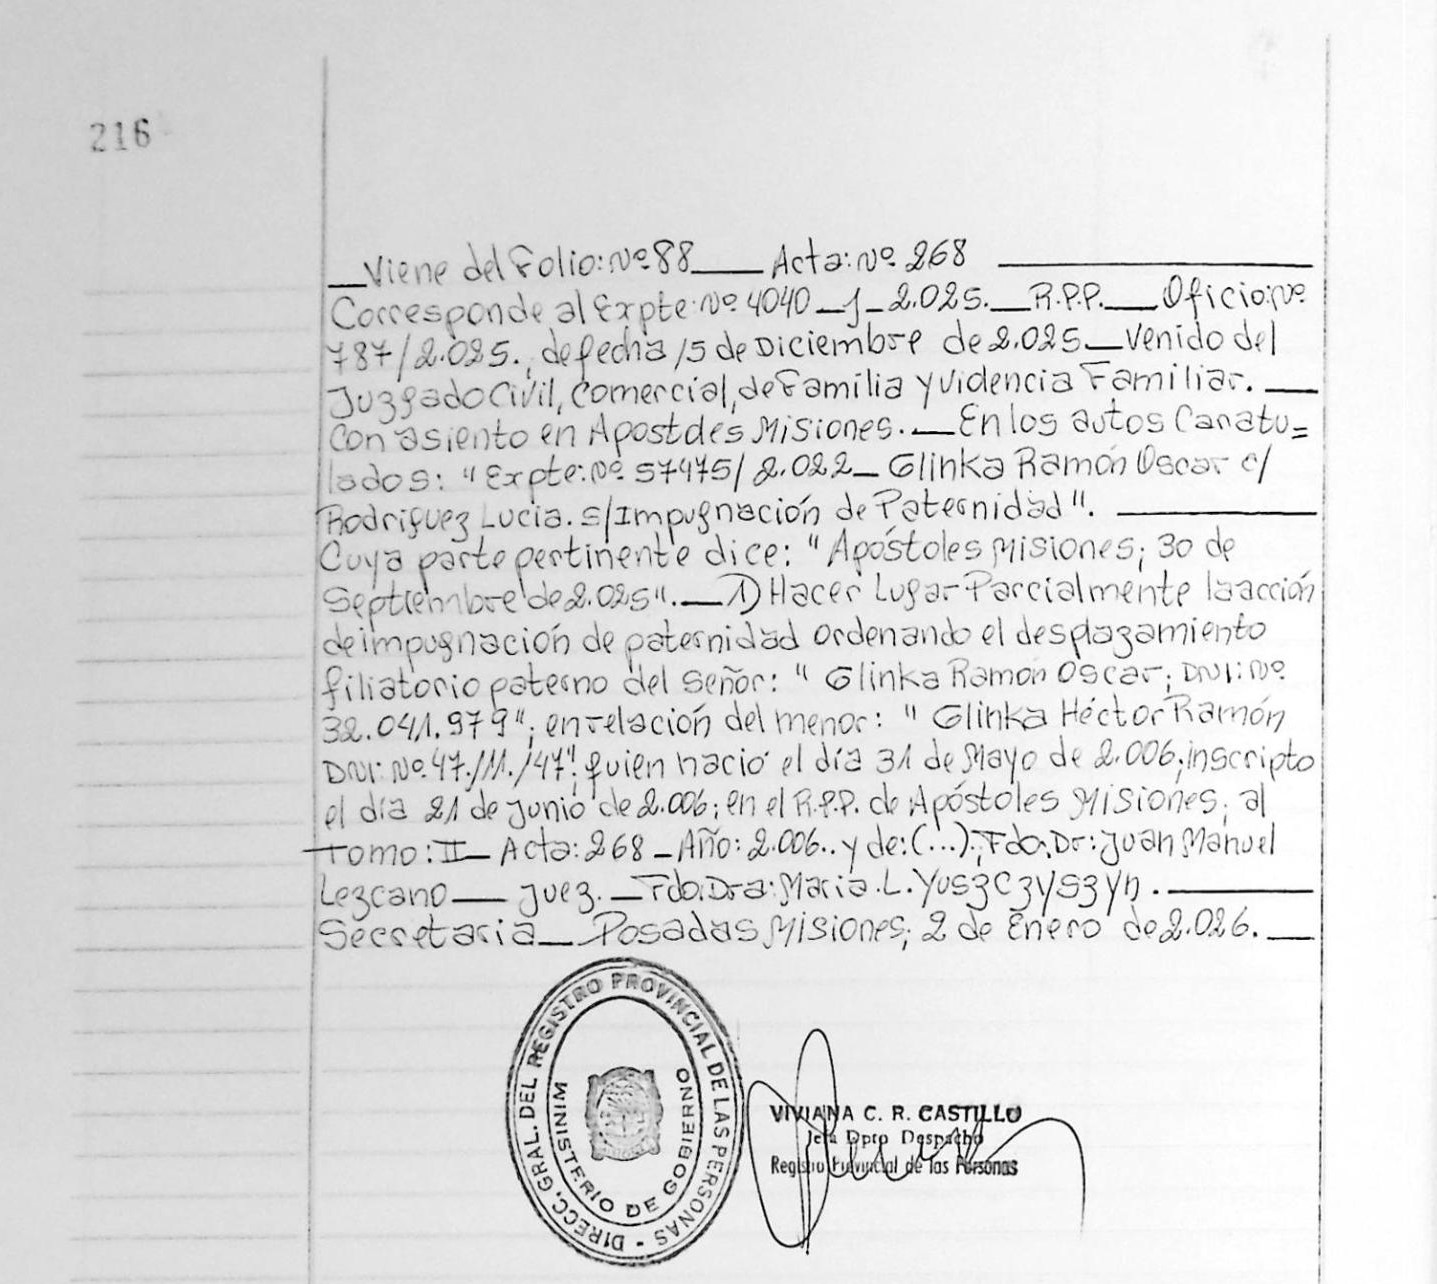 216
Viene del Folio: Nº 88 Acta: Nº 268
Corresponde al Expte: Nº 4040 - J - 2.025. R.P.P. Oficio: Nº
787/2.025., de fecha 15 de Diciembre de 2.025 Venido del
Juzgado Civil, Comercial, de Familia y Violencia Familiar.
Con asiento en Apostoles Misiones. En los autos Caratu=
lados: "Expte: Nº 57475/2.022 - Glinka Ramón Oscar c/
Rodriguez Lucia. s/Impugnación de Paternidad".
Cuya parte pertinente dice: "Apóstoles Misiones; 30 de
Septiembre de 2.025". 1) Hacer Lugar Parcialmente la acción
de impugnación de paternidad ordenando el desplazamiento
filiatorio paterno del Señor: "Glinka Ramón Oscar; DNI: Nº
32.041.979"; en relación del menor: "Glinka Héctor Ramón
DNI: Nº 47.111.147" quien nació el día 31 de Mayo de 2.006; inscripto
el día 21 de Junio de 2.006; en el R.P.P. de Apóstoles Misiones; al
Tomo: II - Acta: 268 - Año: 2.006.. y de: (...); Fdo. Dr: Juan Manuel
Lezcano Juez. Fdo. Dra: Maria. L.
Secretaria Posadas Misiones; 2 de Enero de 2.026.
DIRECC. GRAL. DEL REGISTRO PROVINCIAL DE LAS PERSONAS -
MINISTERIO DE GOBIERNO
VIVIANA C. R. CASTILLO
Jefa Dpto Despacho
Registro Provincial de las Personas